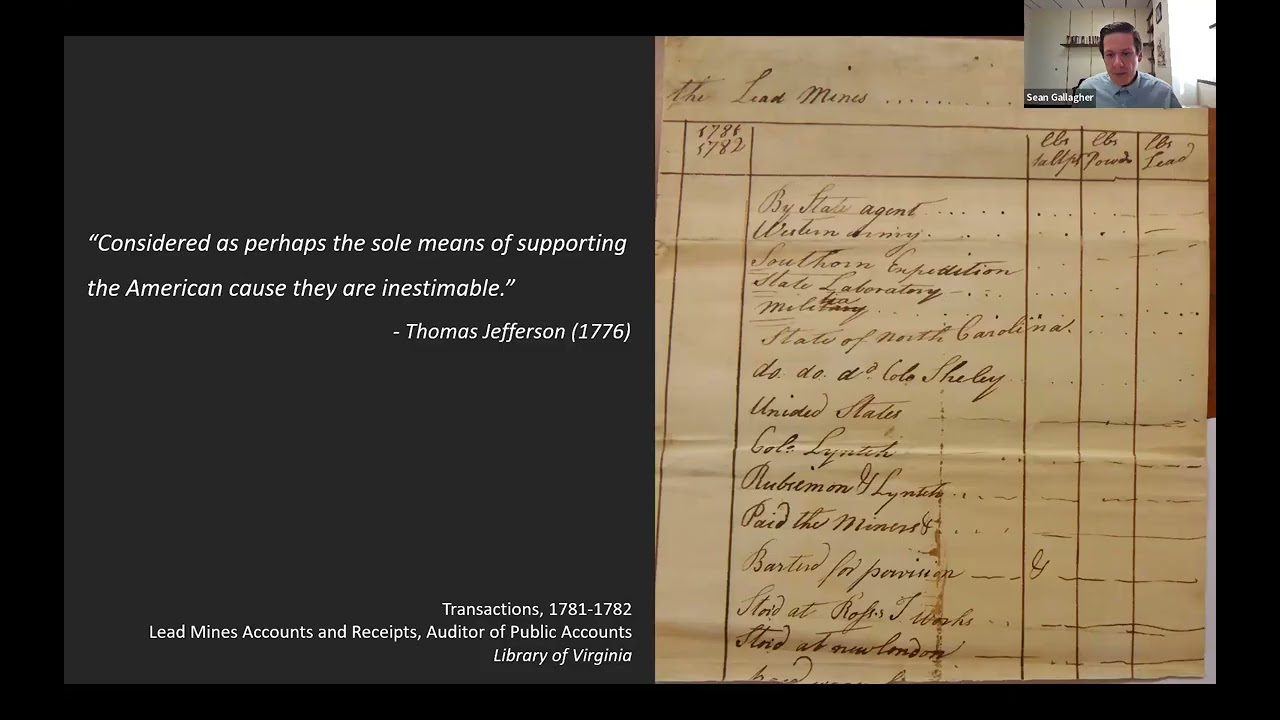 “Considered as perhaps the sole means of supporting
the American cause they are inestimable.”
- Thomas Jefferson (1776)
Transactions, 1781-1782
Lead Mines Accounts and Receipts, Auditor of Public Accounts
Library of Virginia
Sean Gallagher
the Lead Mines
1781
1782
lbs lbs lbs
Lead
By State agent
Western army
Southorn Expedition
State Laboratory
State of North Carolina
do. do. do Colo Sheley
Unided States
Colo Lyntch
& Lyntch
Paid the Miners &
Barterd for provision &
Stord at Ross's Works
Stord at new london